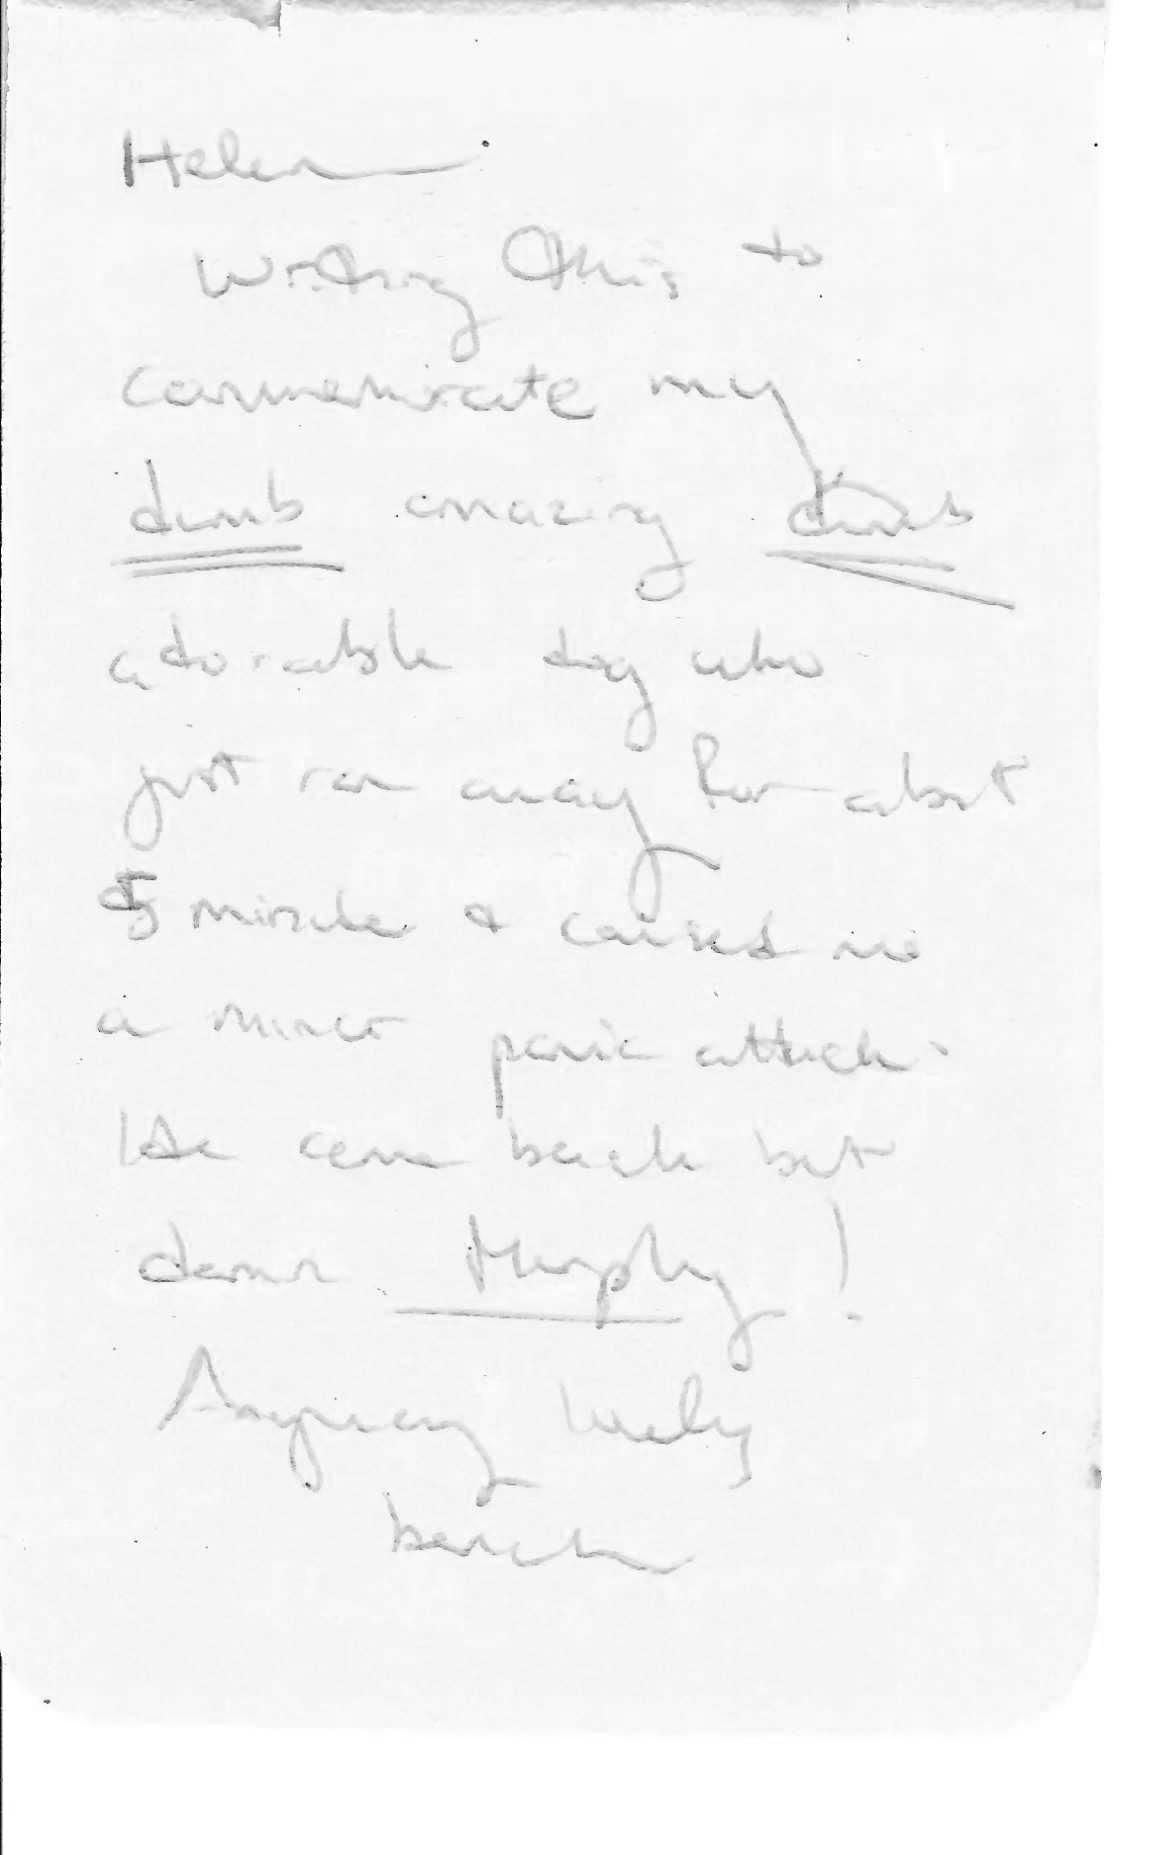 Helen
Writing this to
commemorate my
dumb amazing dumb
adorable dog who
just ran away for about
5 minute & caused me
a minor panic attack.
He came back but
damn Murphy!
Anyway lovely
bench